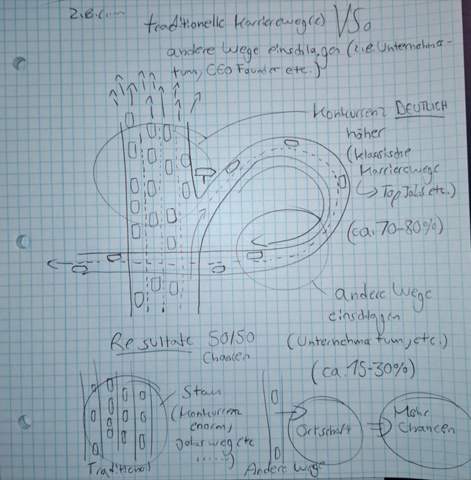 z.B.
traditionelle Karriereweg(e) VS.
andere Wege einschlagen (z.B. Unternehm-
tum, CEO Founder etc.)
Konkurrenz DEUTLICH
höher
(klassische
Karrierewege
↳ Top Jobs etc.)
(ca. 70-80%)
andere Wege
einschlagen
(Unternehmatum, etc.)
(ca. 15-30%)
Resultate 50/50
Chancen
Stau
(Konkurrenz
enorm,
weg etc
......)
Traditionell
Andere Wege
Ortschaft
Mehr
Chancen